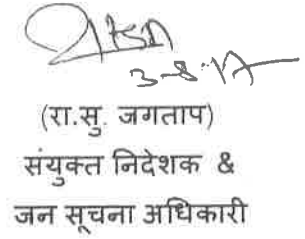 3-8-17
(रा.सु. जगताप)
संयुक्त निदेशक &
जन सूचना अधिकारी